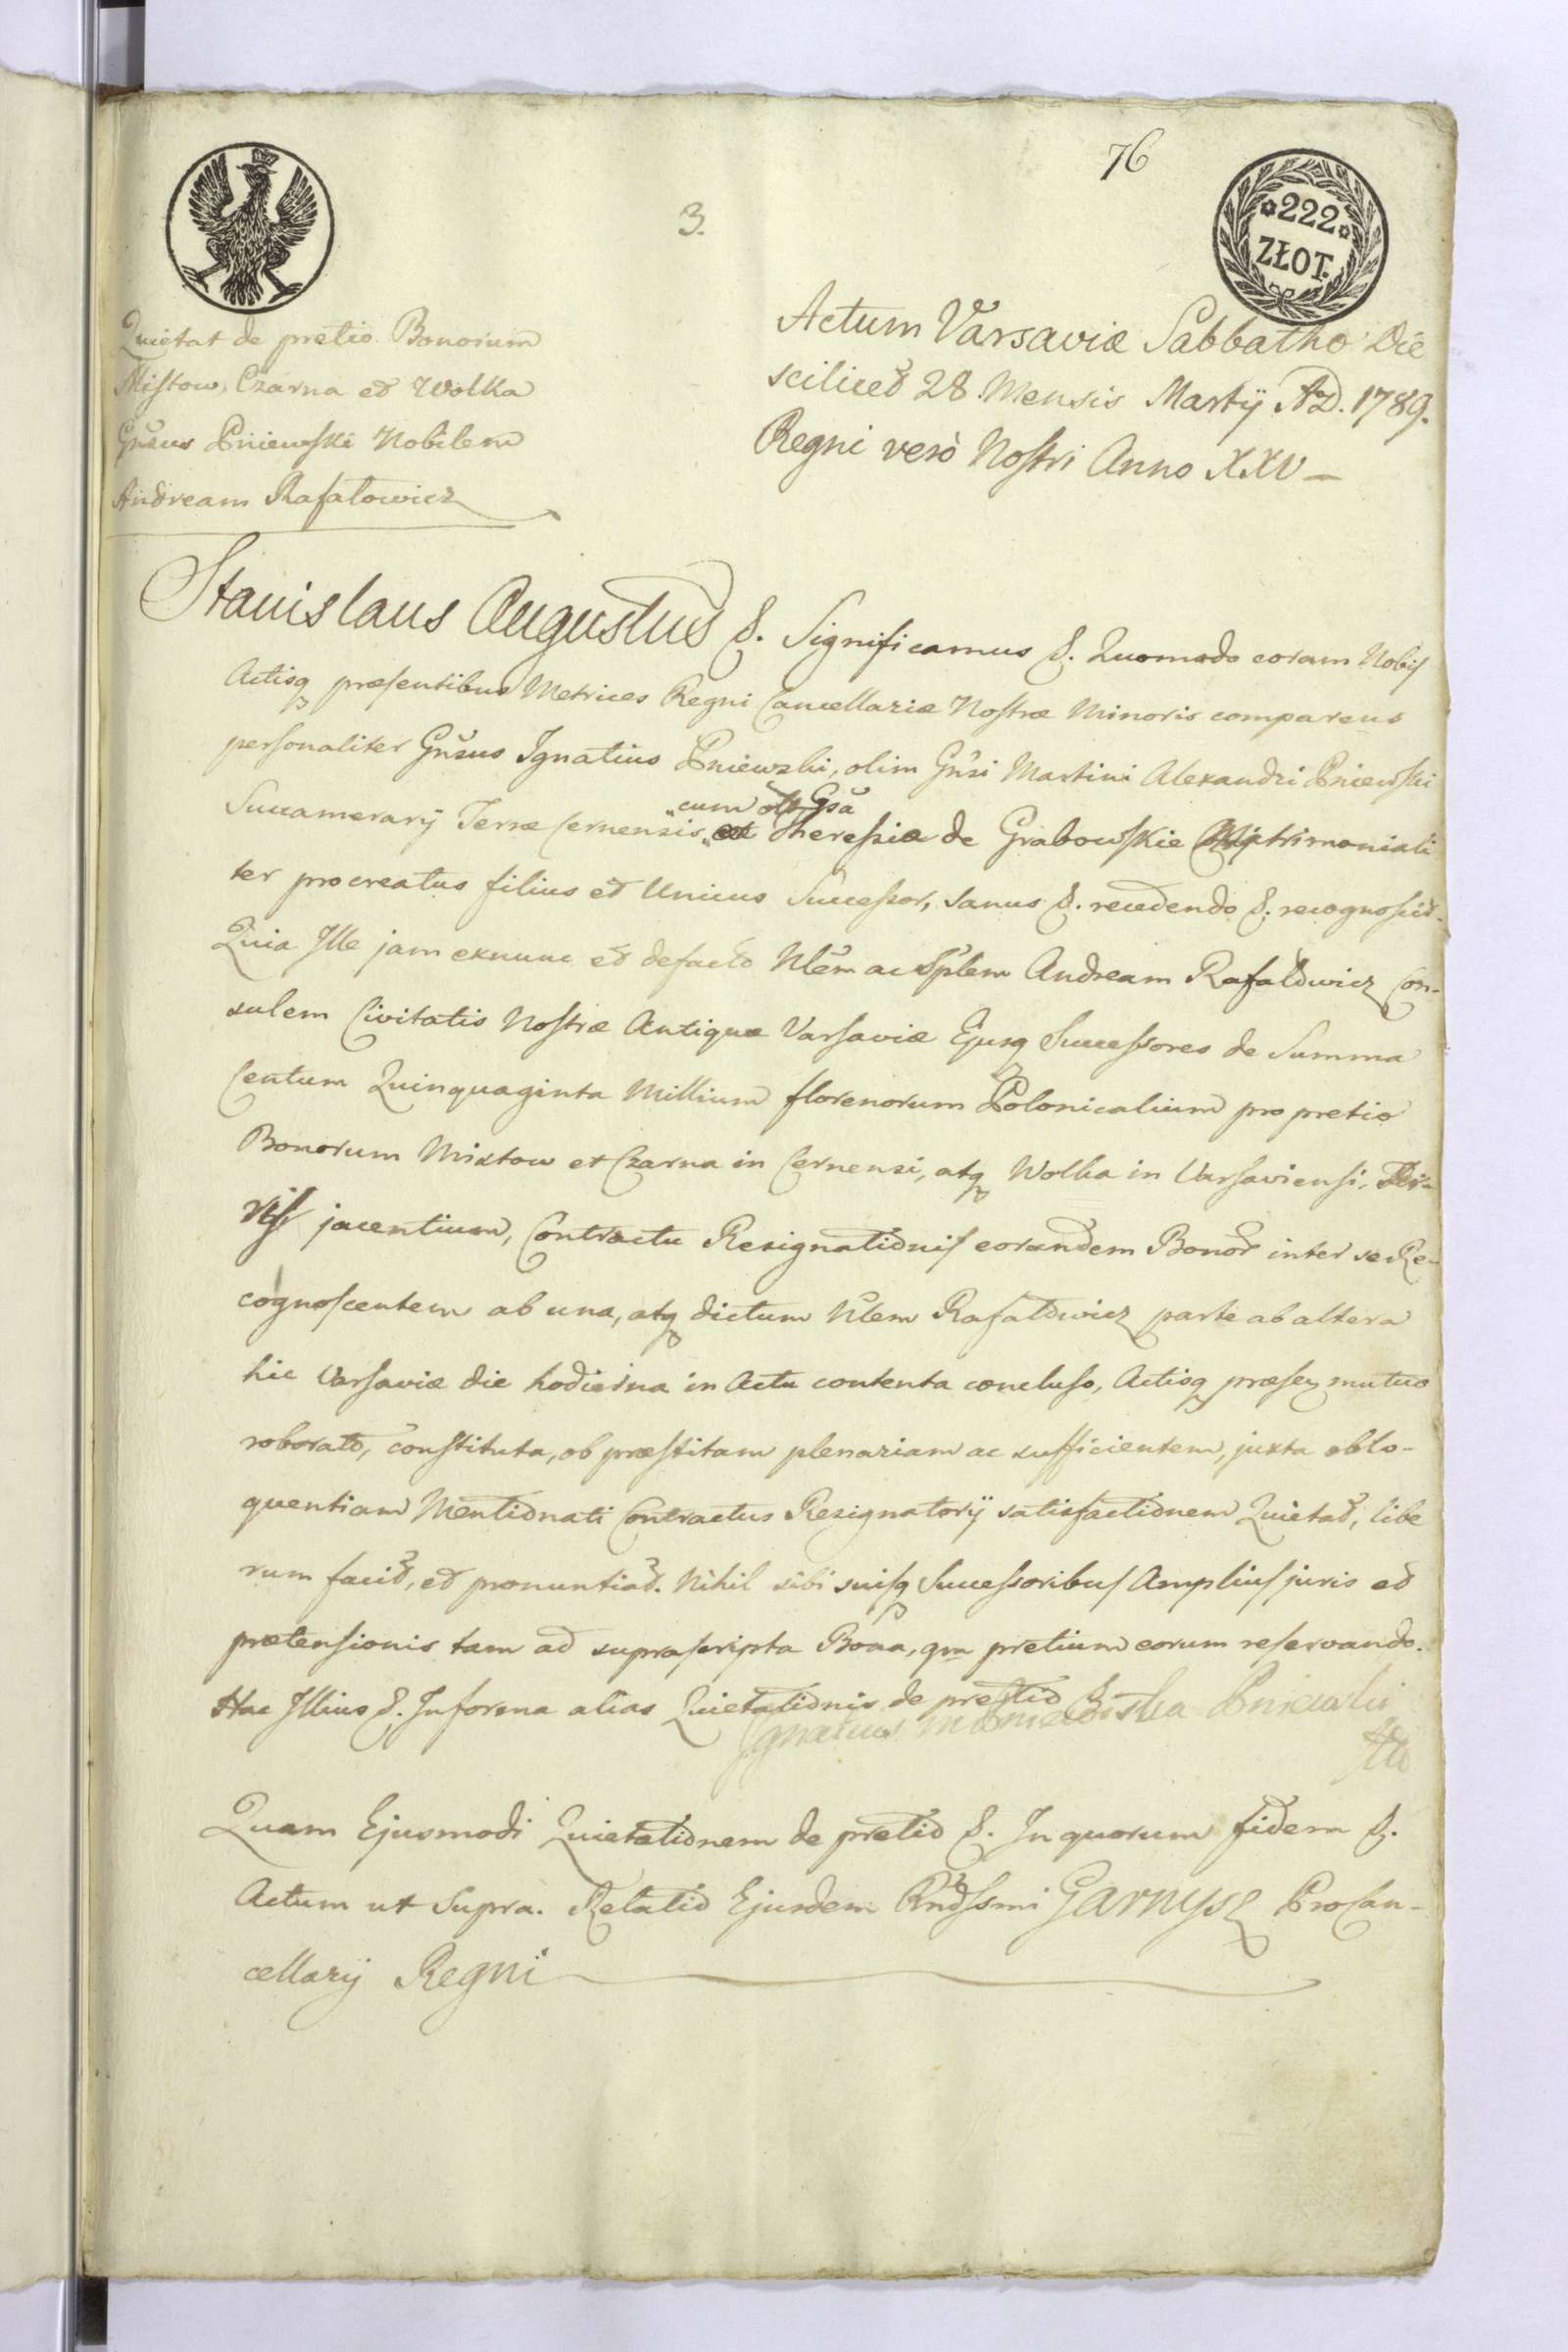 76
3.
222
ZŁOT.
Quietat de pretio Bonorum
Mistow, Czarna et Wolka
Gnsus Pniewski Nobilem
Andream Rafałowicz
Actum Varsaviæ Sabbatho Die
scilicet 28 Mensis Martij AD. 1789.
Regni verò Nostri Anno XXV
Stanislaus Augustus &. Significamus &. Quomodo coram Nobis
Actisq præsentibus Metrices Regni Cancellariæ Nostræ Minoris comparens
personaliter Gnsus Ignatius Pniewski, olim Gnsi Martini Alexandri Pniewski
cum Gsa
Succamerarij Terræ Cernensis Theresia de Grabowskie Matrimoniali
ter procreatus filius et Unicus Successor, sanus &. recedendo &. recognoscit.
Quia Ille jam exnunc et defacto Nlem ac Splem Andream Rafałowicz Con-
sulem Civitatis Nostræ Antiquæ Varsaviæ Ejusq Successores de Summa
Centum Quinquaginta Millium florenorum Polonicalium pro pretio
Bonorum Mistow et Czarna in Cernensi, atq Wolka in Varsaviensi, Ter-
ris jacentium, Contractu Resignationis eorundem Bonor inter se Re-
cognoscentem ab una, atq dictum Nlem Rafałowicz parte ab altera
hic Varsaviæ die hodierna in Actu contenta concluso, Actisq præsen mutuo
roborato, constituta, ob præstitam plenariam ac sufficientem, juxta oblo-
quentiam Mentionati Contractus Resignatorij satisfactionem Quietat, libe
rum facit, et pronuntiat. Nihil sibi suisq Successoribus Amplius juris et
prætensionis tam ad suprascripta Bona, qm pretium eorum reservando.
Hac Illius &. In forma alias Quietationis de pretio &.
Ignatius Pniewski
Quam Ejusmodi Quietationem de pretio &. In quorum fidem &.
Actum ut Supra. Relatio Ejusdem Rndssmi Garnysz ProCan-
cellarij Regni